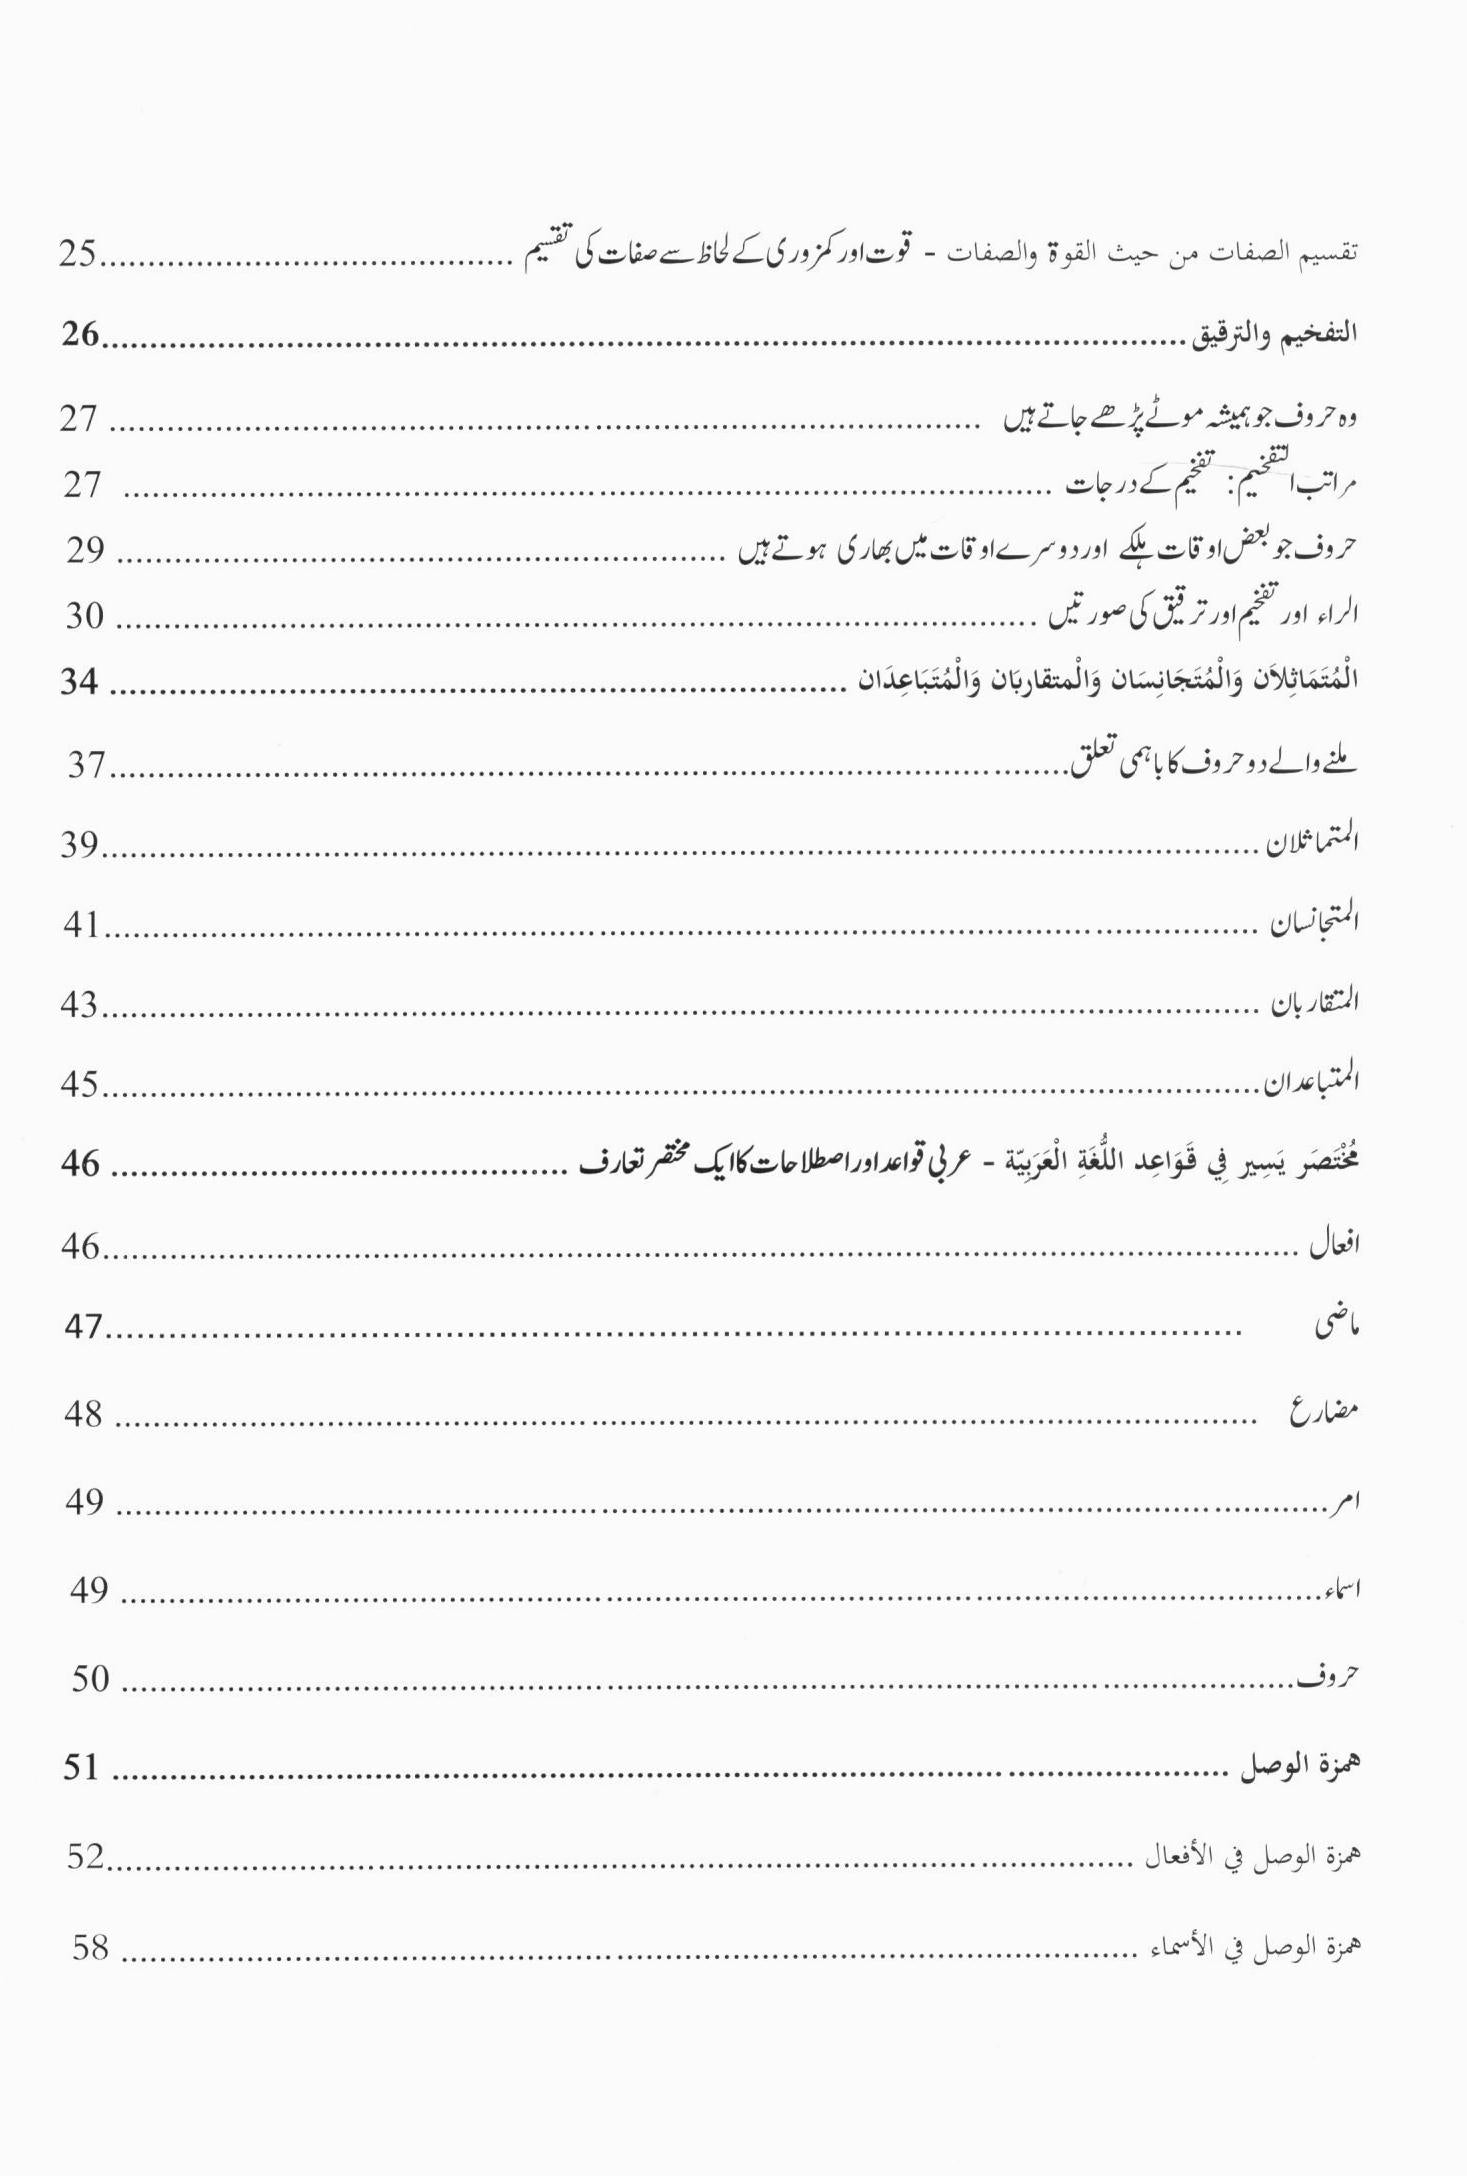 تقسيم الصفات من حيث القوة والصفات - قوت اور کمزوری کے لحاظ سے صفات کی تقسیم ........................................ 25
التفخيم والترقيق ........................................ 26
وہ حروف جو ہمیشہ موٹے پڑھے جاتے ہیں ........................................ 27
مراتب التفخیم : تفخیم کے درجات ........................................ 27
حروف جو بعض اوقات ہلکے اور دوسرے اوقات میں بھاری ہوتے ہیں ........................................ 29
الراء اور تفخیم اور ترقیق کی صورتیں ........................................ 30
الْمُتَمَاثِلاَن وَالْمُتَجَانِسَان وَالْمتقاربَان وَالْمُتَبَاعِدَان ........................................ 34
ملنے والے دو حروف کا باہمی تعلق ........................................ 37
المتماثلان ........................................ 39
المتجانسان ........................................ 41
المتقاربان ........................................ 43
المتباعدان ........................................ 45
مُخْتَصَر يَسِير فِي قَوَاعِد اللُّغَةِ الْعَرَبِيّة - عربی قواعد اور اصطلاحات کا ایک مختصر تعارف ........................................ 46
افعال ........................................ 46
ماضی ........................................ 47
مضارع ........................................ 48
امر ........................................ 49
اسماء ........................................ 49
حروف ........................................ 50
همزة الوصل ........................................ 51
همزة الوصل في الأفعال ........................................ 52
همزة الوصل في الأسماء ........................................ 58